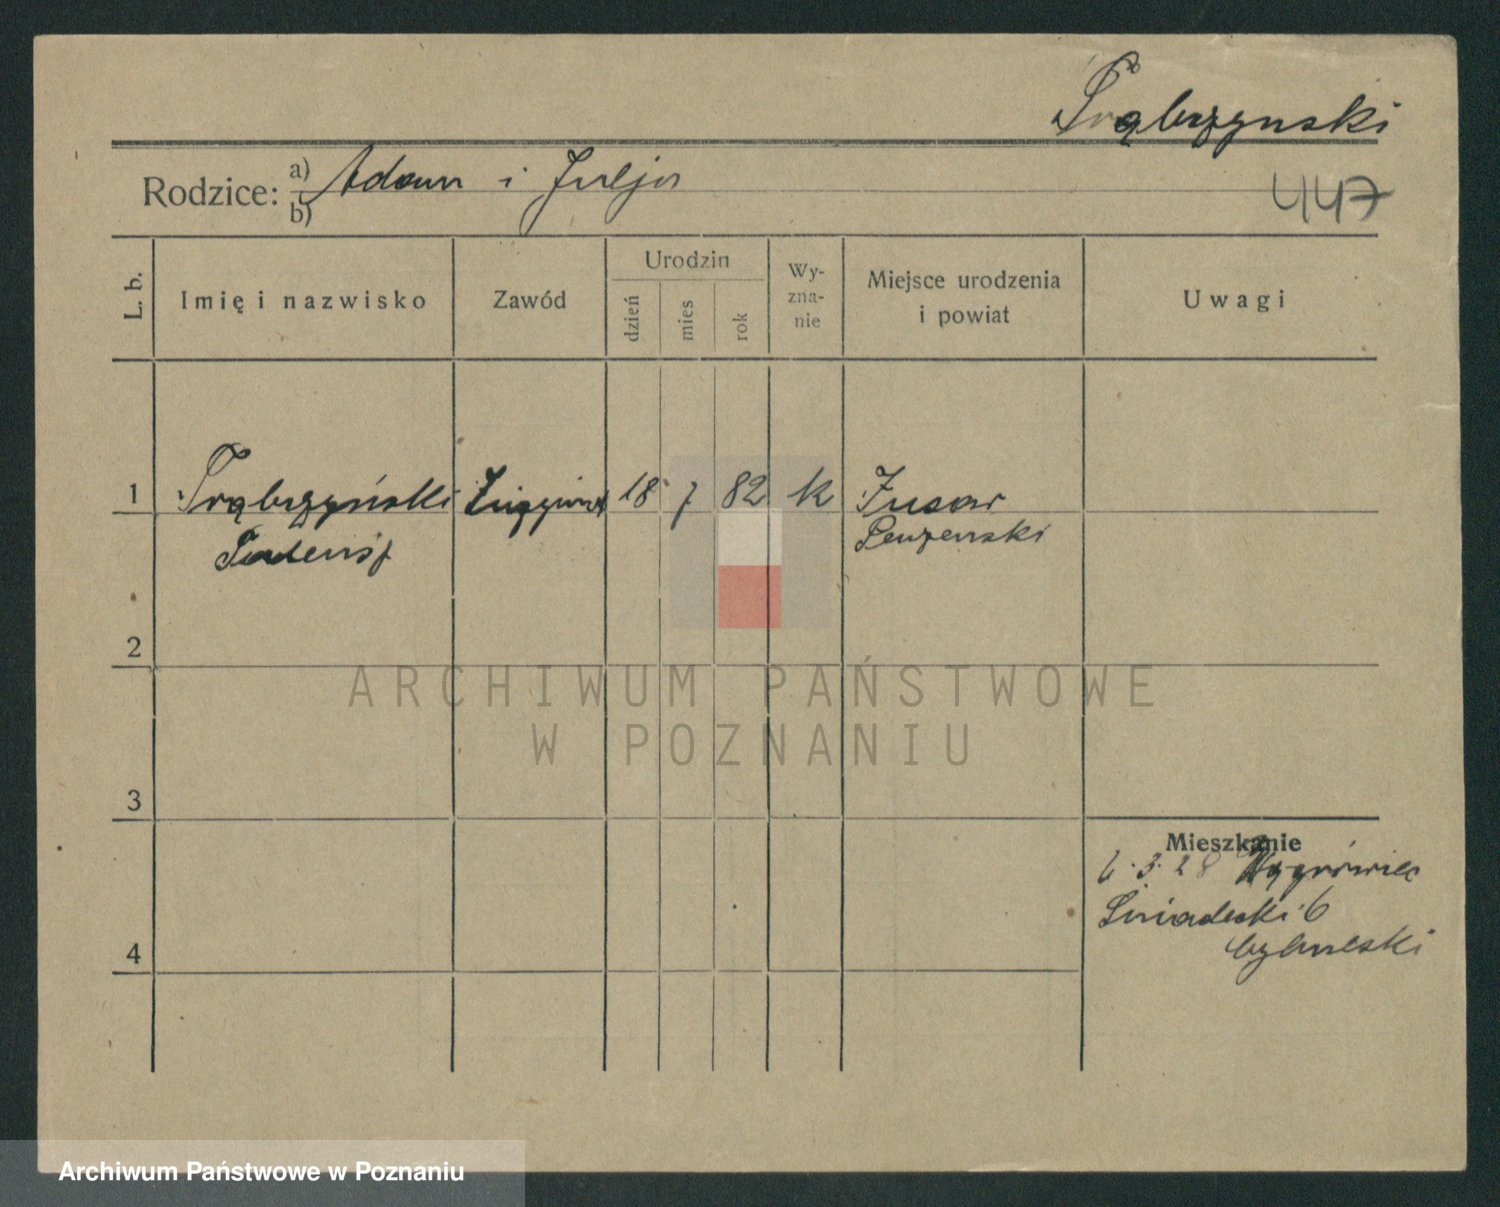 Trąbczynski
Rodzice: a) Adam i Julja
b)
447
L. b.
Imię i nazwisko
Zawód
Urodzin
dzień
mies
rok
Wy-
zna-
nie
Miejsce urodzenia
i powiat
Uwagi
1 Trąbczyński 18 7 82 k
Tadeusz
Penzenski
2
ARCHIWUM PAŃSTWOWE
W POZNANIU
3
Mieszkanie
6.3.28 Wągrówiec
Śniadecki 6
4
Cybulski
Archiwum Państwowe w Poznaniu